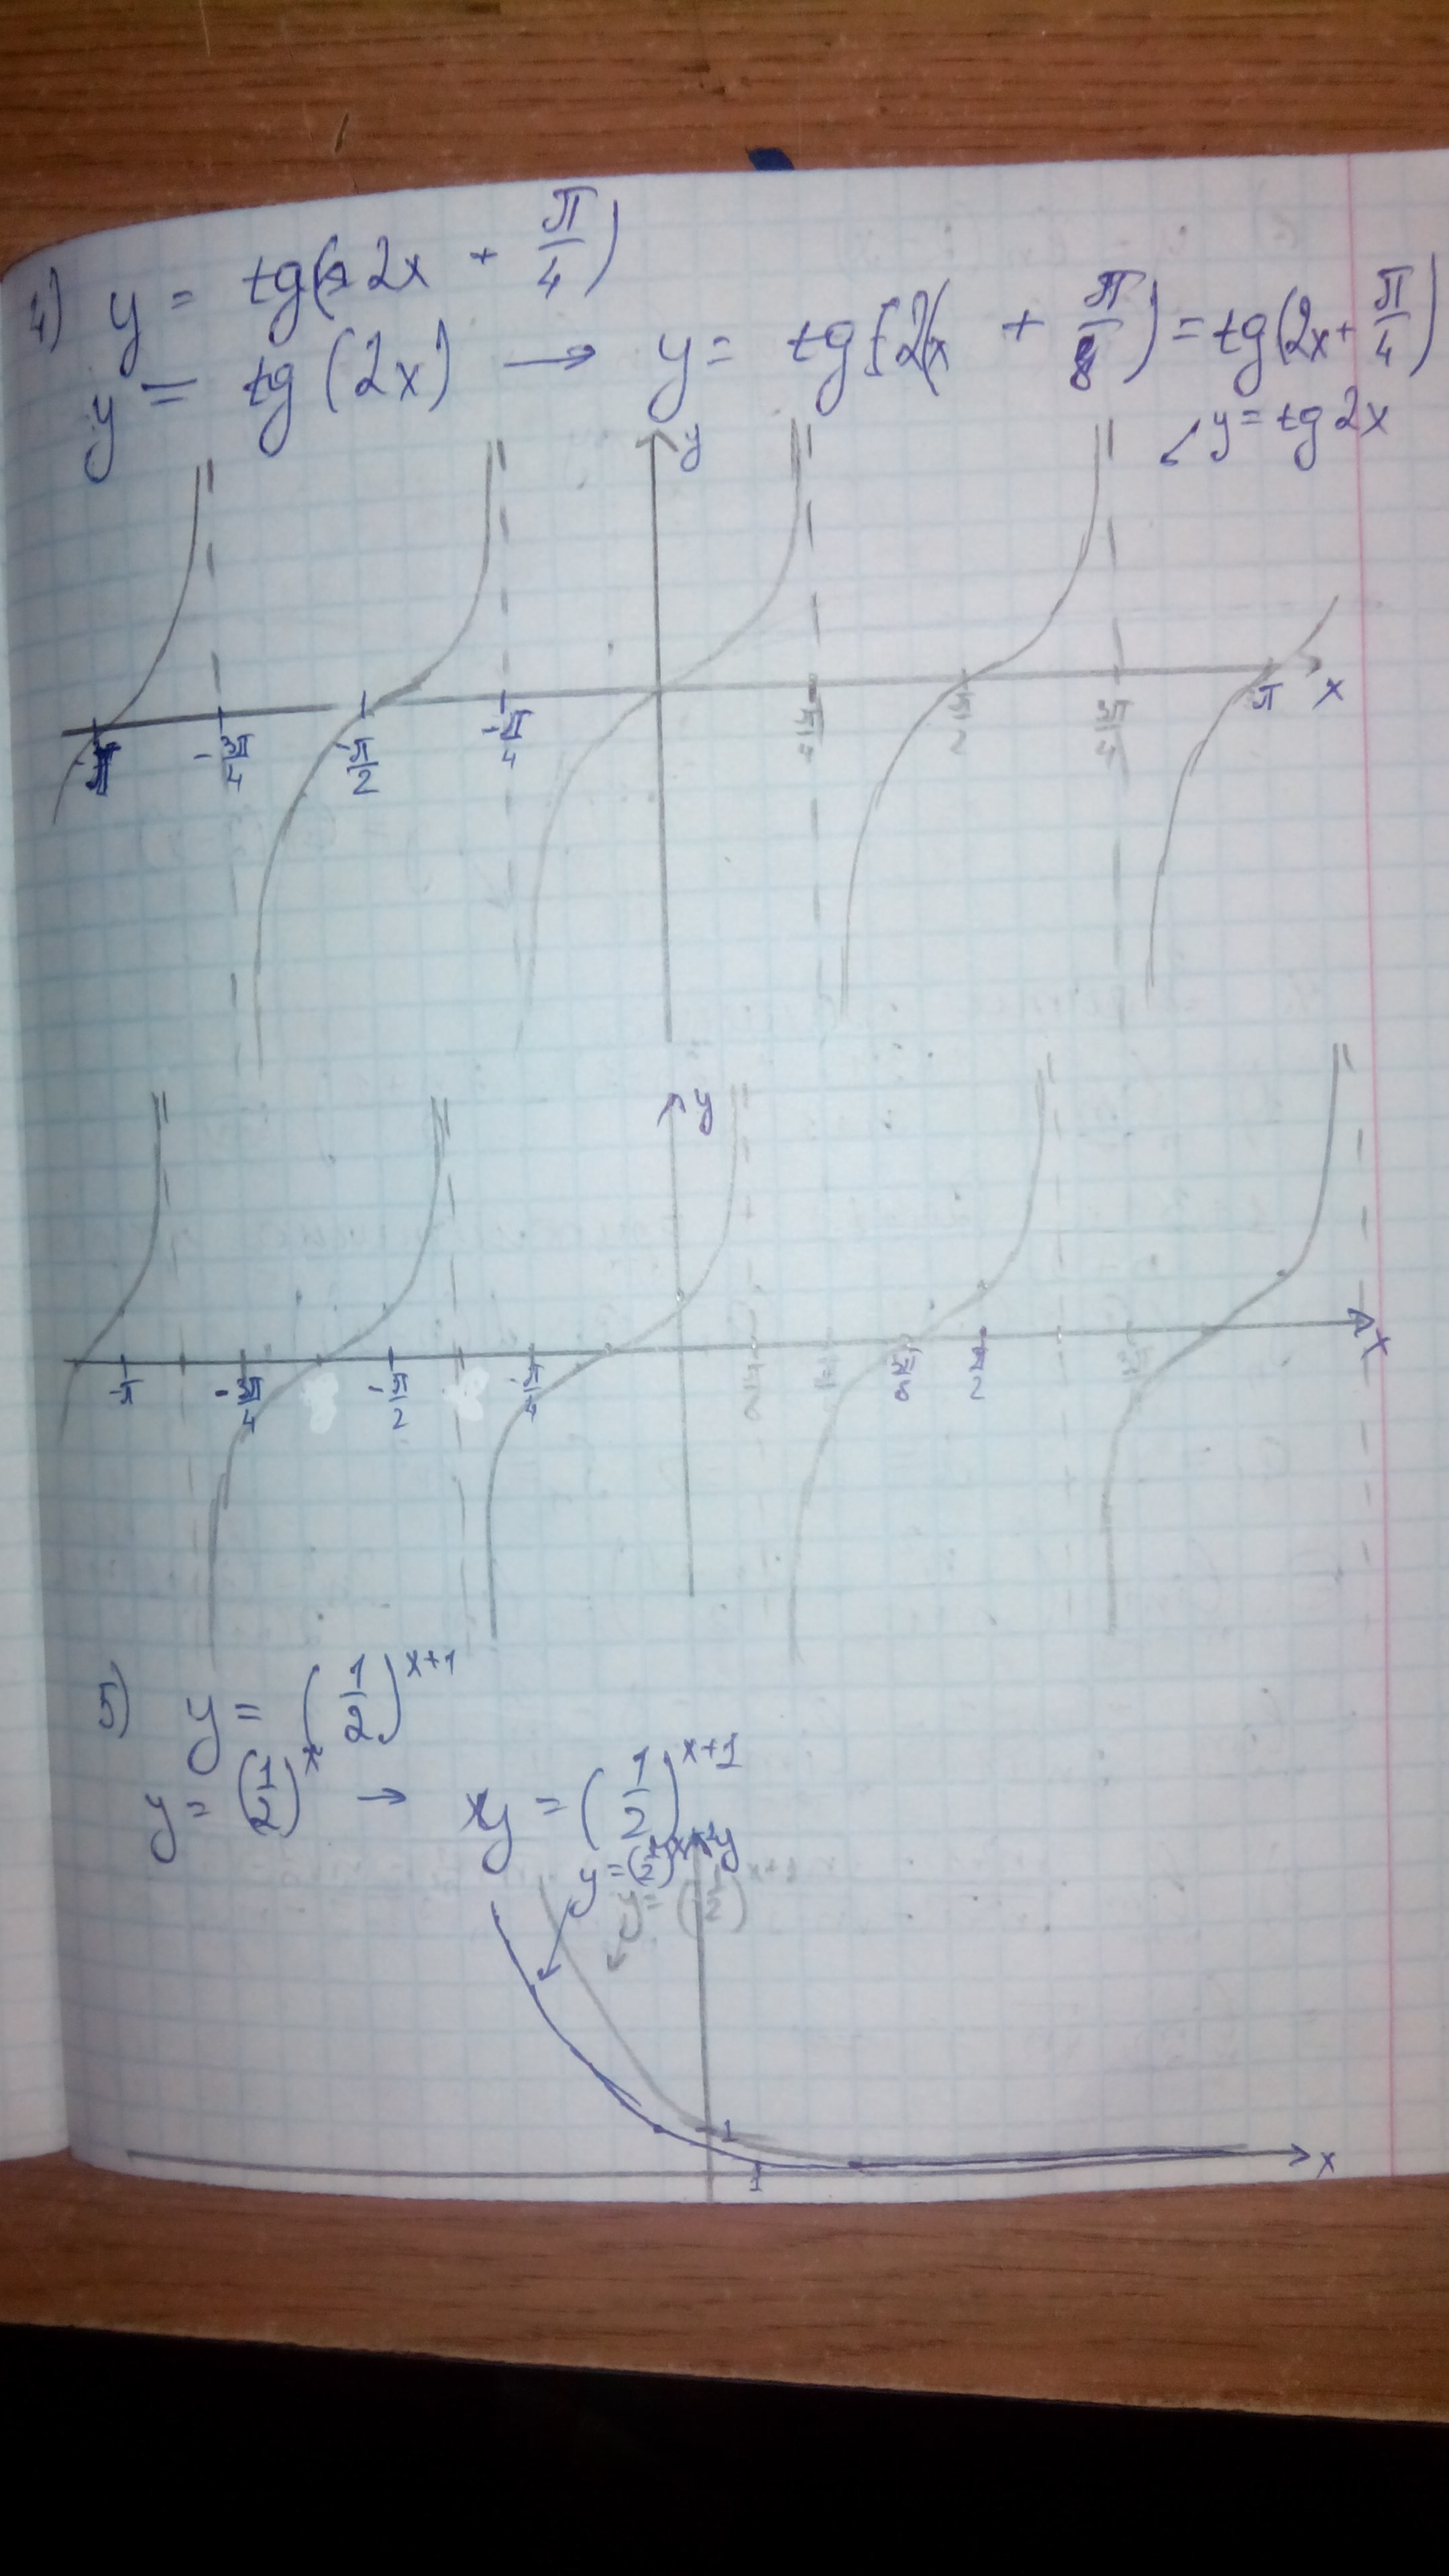 4) y = tg(2x + π/4)
y = tg(2x) → y = tg[2(x + π/8) = tg(2x + π/4)
↙ y = tg 2x
y
-π -3π/4 -π/2 -π/4 π/4 π/2 3π/4 π x
y
-π -3π/4 -π/2 -π/4 π/8 π/2 x
5) y = (1/2)^(x+1)
y = (1/2)^x → y = (1/2)^(x+1)
y
y = (1/2)^(x+1)
1
1 x